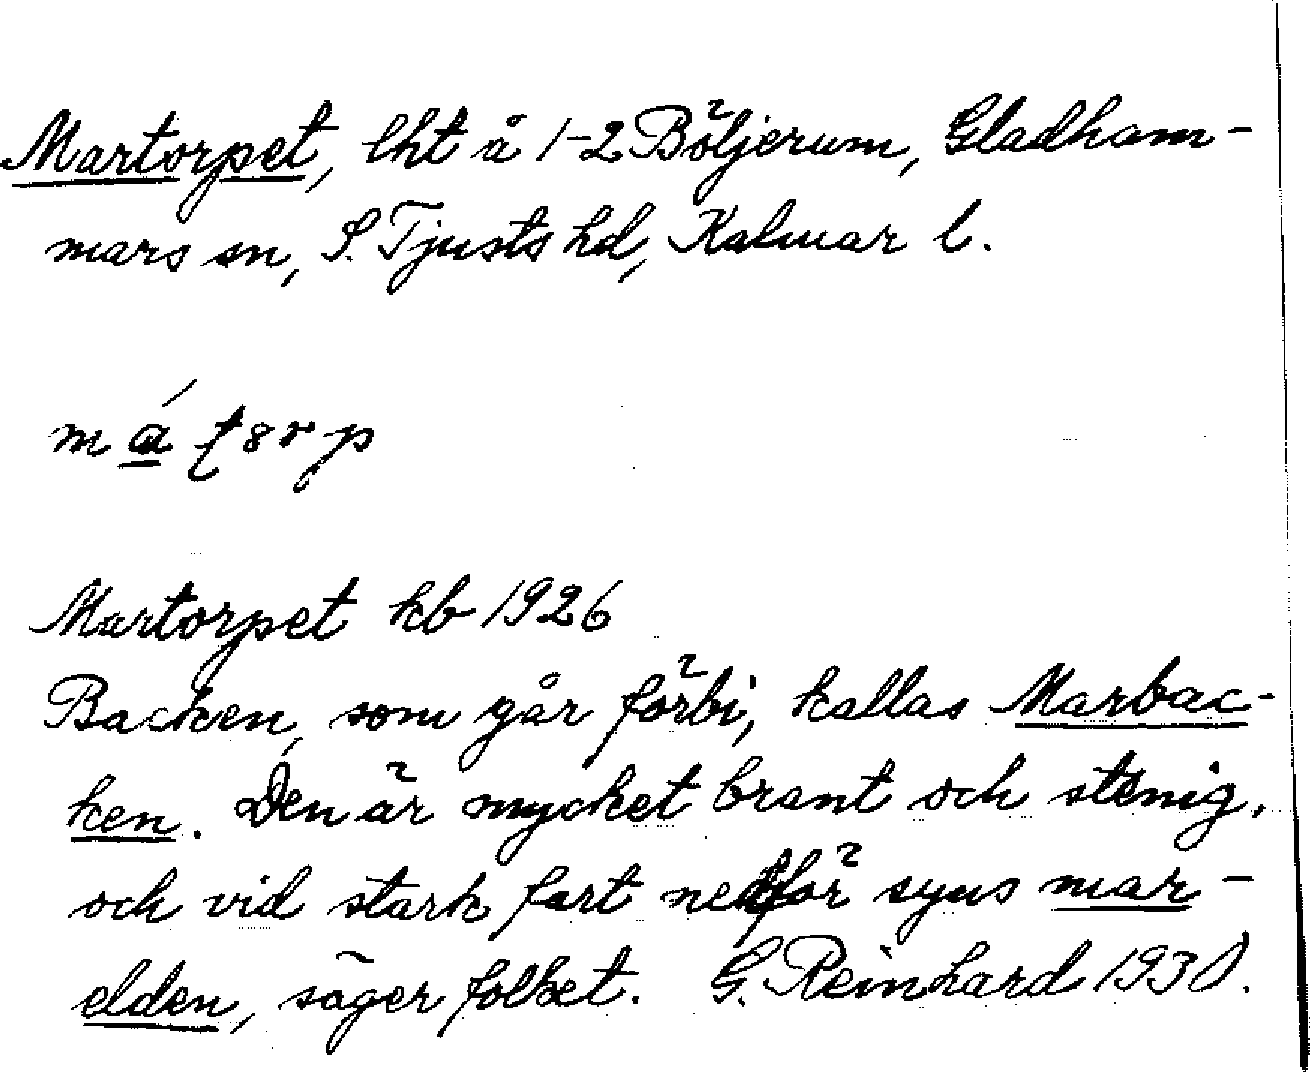 Martorpet, lht å 1-2 Böljerum, Gladham-
mars sn, S. Tjusts hd, Kalmar l.
Martorpet kb 1926
Backen, som går förbi, kallas Marbac-
ken. Den är mycket brant och stenig,
och vid stark fart nedför syns mar-
elden, säger folket. G. Reinhard 1930.